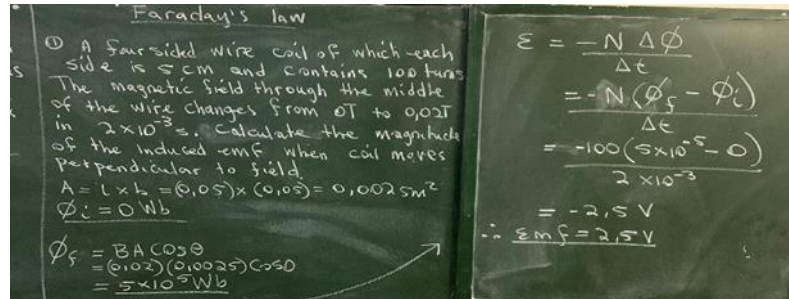 Faraday's law
① A four sided wire coil of which each
side is 5 cm and contains 100 turns
The magnetic field through the middle
of the wire changes from 0T to 0,02T
in 2×10⁻³ s. Calculate the magnitude
of the induced emf when coil moves
perpendicular to field.
A = l × b = (0,05) × (0,05) = 0,0025m²
Øi = 0 Wb
Øf = BA Cos θ
= (0,02)(0,0025) Cos0
= 5×10⁻⁵ Wb
Ɛ = -N ΔØ
Δt
= -N (Øf - Øi)
Δt
= -100(5×10⁻⁵ - 0)
2 ×10⁻³
= -2,5 V
∴ Ɛmf = 2,5 V